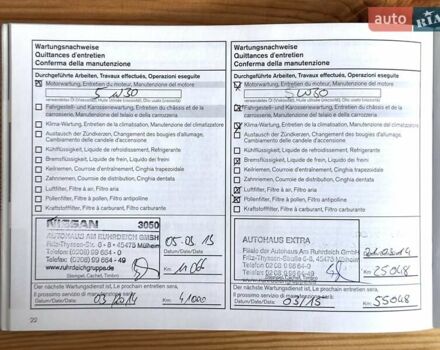 auto
RIA
Wartungsnachweise
Quittances d'entretien
Conferma della manutenzione
Durchgeführte Arbeiten, Travaux effectués, Operazioni eseguite
Motorwartung, Entretien du moteur, Manutenzione del motore
5W30
verwendetes Öl (Viscosität), Huile utilisée (viscosité), Olio usato (viscosità)
Fahrgestell- und Karosseriewartung, Entretien du châssis et de la
carrosserie, Manutenzione del telaio e della carrozzeria
Klima-Wartung, Entretien de la climatisation, Manutenzione del climatizzatore
Austausch der Zündkerzen, Changement des bougies d'allumage,
Cambiamento delle candele d'accensione
Kühlflüssigkeit, Liquide de refroidissement, Refrigerante
Bremsflüssigkeit, Liquide de frein, Liquido dei freni
Keilriemen, Courroie d'entraînement, Cinghia trapezoidale
Zahnriemen, Courroie de distribution, Cinghia dentata
Luftfilter, Filtre à air, Filtro aria
Pollenfilter, Filtre à pollen, Filtro antipolline
Kraftstofffilter, Filtre à carburant, Filtro carburante
NISSAN 3050
AUTOHAUS AM RUHRDEICH GMBH
Fritz-Thyssen-Str. 6 - 8 · 45475 Mülheim
Telefon: (0208) 99 664 - 0
Telefax: (0208) 99 664 - 49
www.ruhrdeichgruppe.de
Stempel, Cachet, Timbro
05.03.13
Datum/Date/Data:
Km:
Der nächste Wartungsdienst ist, Le prochain entretien sera,
Il prossimo servizio di manutenzione sarà:
Datum/Date/Data: 03/2014 Km: 41000
22
Wartungsnachweise
Quittances d'entretien
Conferma della manutenzione
Durchgeführte Arbeiten, Travaux effectués, Operazioni eseguite
Motorwartung, Entretien du moteur, Manutenzione del motore
5W30
verwendetes Öl (Viscosität), Huile utilisée (viscosité), Olio usato (viscosità)
Fahrgestell- und Karosseriewartung, Entretien du châssis et de la
carrosserie, Manutenzione del telaio e della carrozzeria
Klima-Wartung, Entretien de la climatisation, Manutenzione del climatizzatore
Austausch der Zündkerzen, Changement des bougies d'allumage,
Cambiamento delle candele d'accensione
Kühlflüssigkeit, Liquide de refroidissement, Refrigerante
Bremsflüssigkeit, Liquide de frein, Liquido dei freni
Keilriemen, Courroie d'entraînement, Cinghia trapezoidale
Zahnriemen, Courroie de distribution, Cinghia dentata
Luftfilter, Filtre à air, Filtro aria
Pollenfilter, Filtre à pollen, Filtro antipolline
Kraftstofffilter, Filtre à carburant, Filtro carburante
AUTOHAUS EXTRA
Filiale der Autohaus Am Ruhrdeich GmbH
Fritz-Thyssen-Straße 6-8, 45475 Mülheim
Telefon 02 08 9 96 64-0
Telefax 02 08 9 96 64-49
Stempel, Cachet, Timbro
Datum/Date/Data:
Km: 25048
Der nächste Wartungsdienst ist, Le prochain entretien sera,
Il prossimo servizio di manutenzione sarà:
Datum/Date/Data: 03/15 Km: 55048